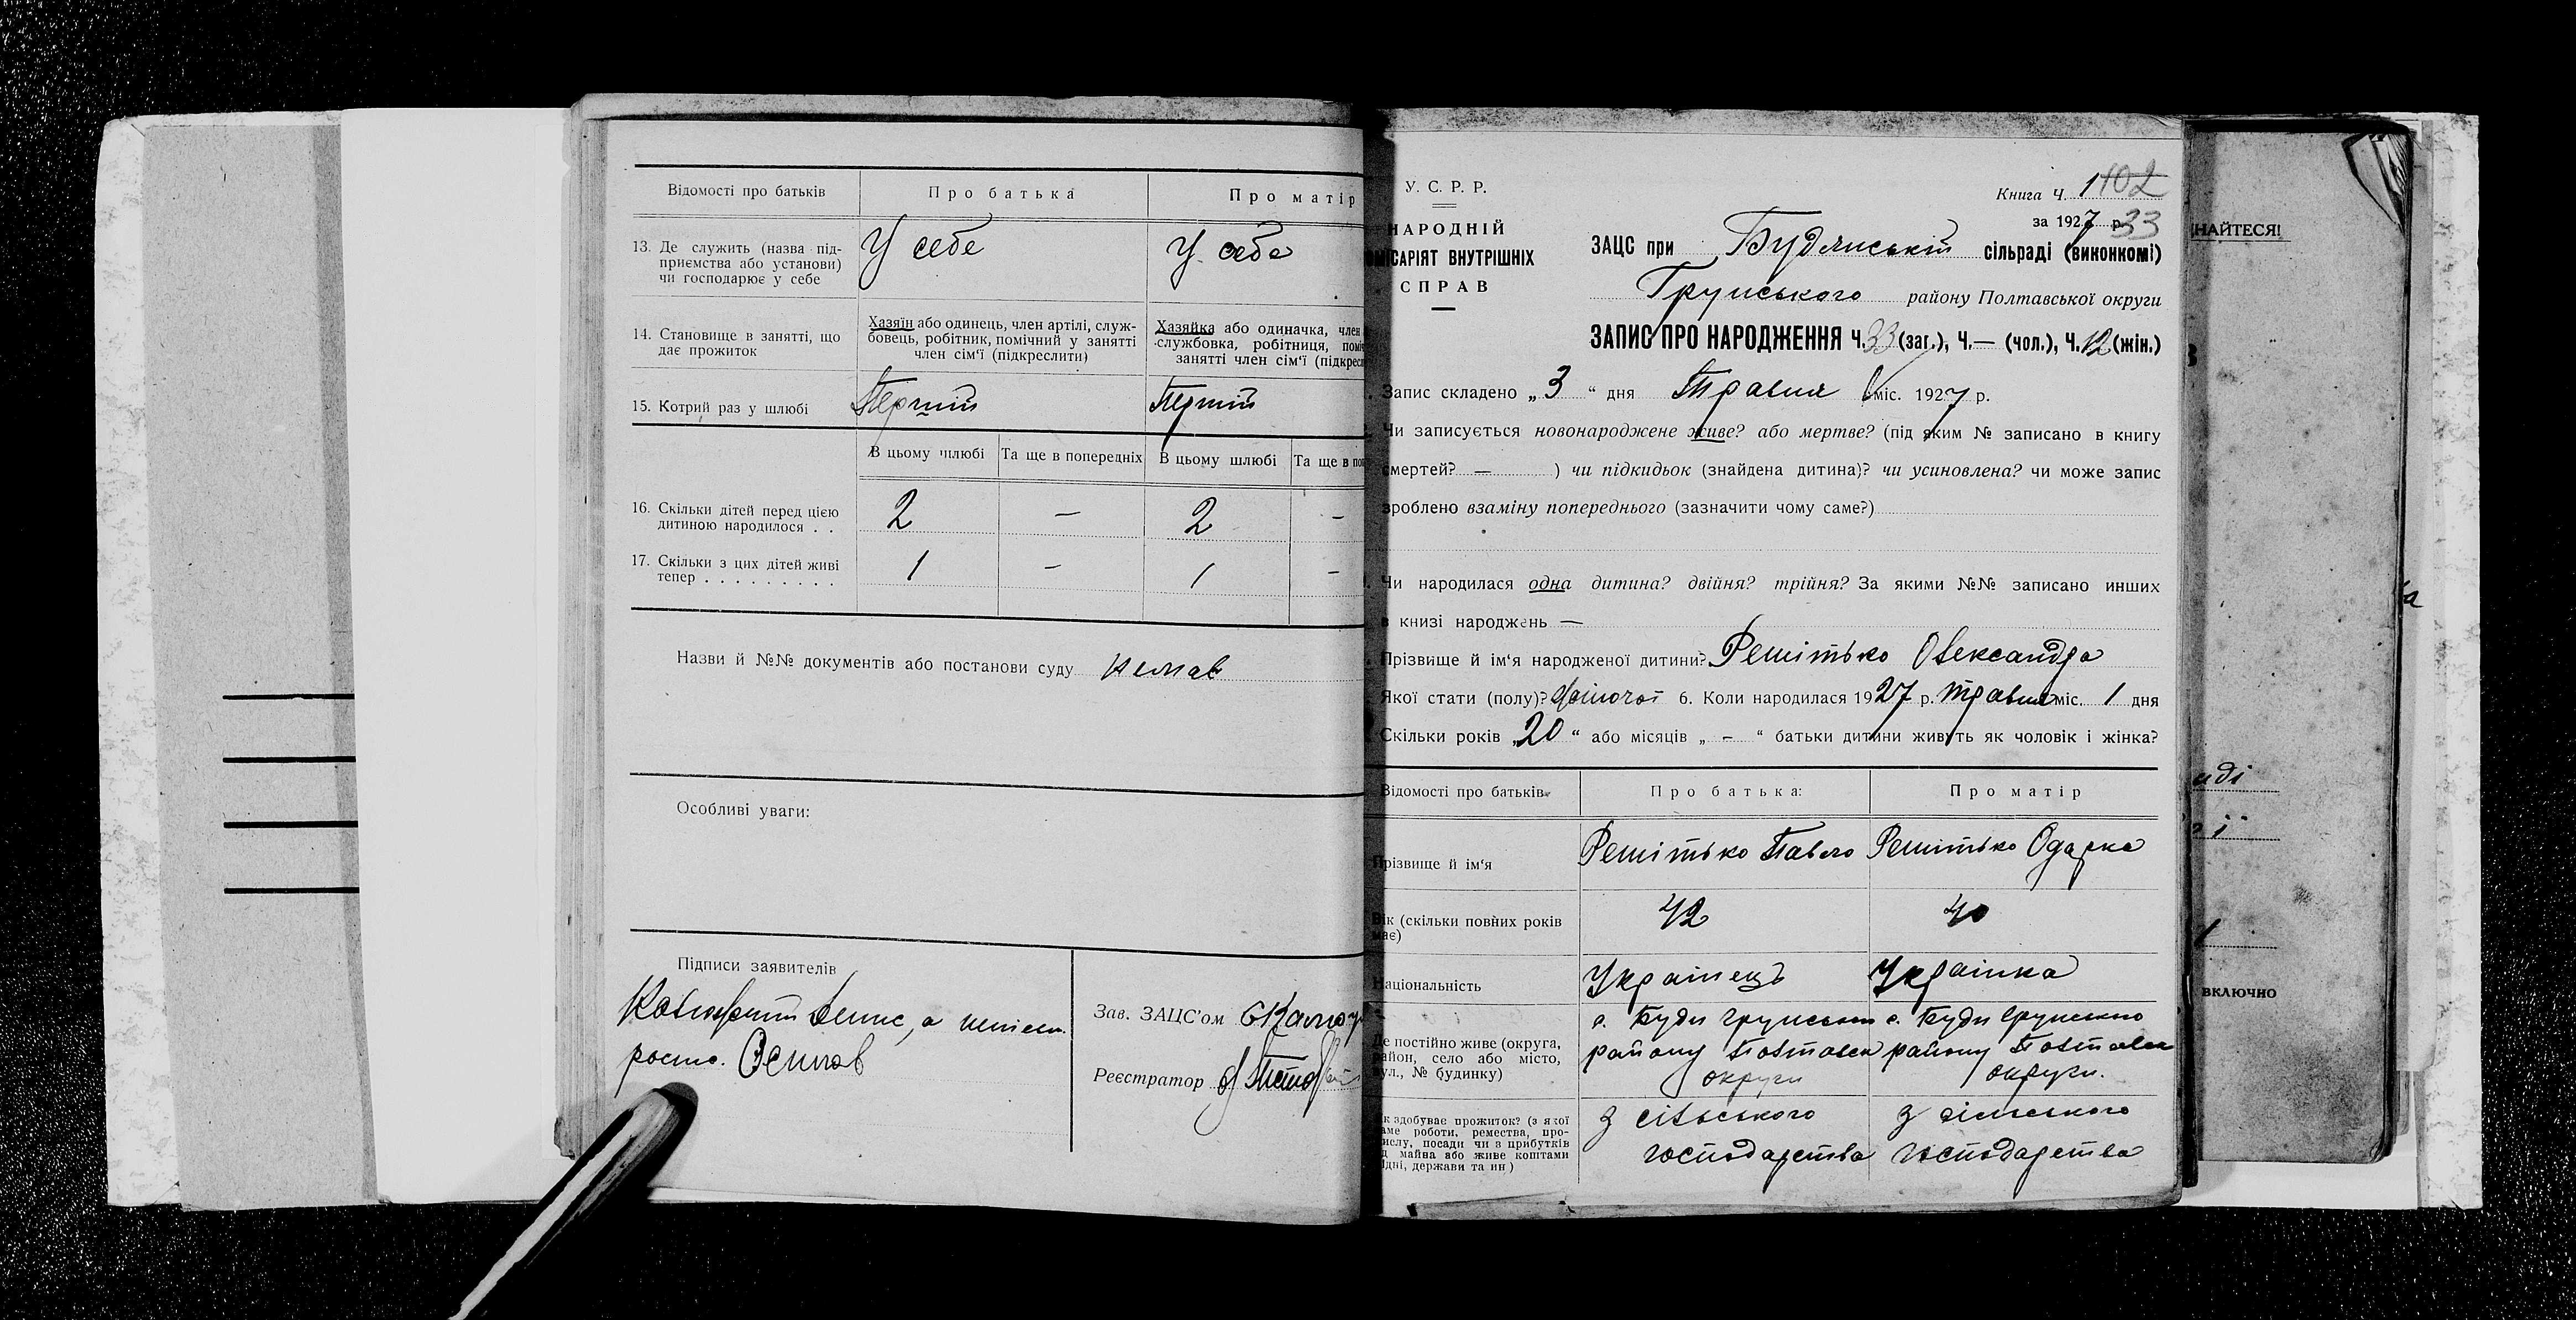 Відомості про батьків
Про батька
Про матір
13. Де служить (назва під-
приємства або установи)
чи господарює у себе
У себе
У себе
14. Становище в занятті, що
дає прожиток
Хазяїн або одинець, член артілі, служ-
бовець, робітник, помічний у занятті
член сім'ї (підкреслити)
Хазяйка або одиначка, член
службовка, робітниця,
занятті член сім'ї
15. Котрий раз у шлюбі
Перший
Перший
В цьому шлюбі
Та ще в попередніх
В цьому шлюбі
Та ще в
16. Скільки дітей перед цією
дитиною народилося . .
2
—
2
—
17. Скільки з цих дітей живі
тепер . . . . . . . . .
1
—
1
—
Назви й №№ документів або постанови суду немає
Особливі уваги:
Підписи заявителів
Денис, а
Зав. ЗАЦС'ом
Реєстратор
У. С. Р. Р.
НАРОДНІЙ
ВНУТРІШНІХ
СПРАВ
Книга Ч. 1 102
за 1927 р. 33
ЗАЦС при Будянській сільраді (виконкомі)
Грунського району Полтавської округи
ЗАПИС ПРО НАРОДЖЕННЯ Ч. 33 (заг.), Ч. — (чол.), Ч. 12 (жін.)
Запис складено „3“ дня Травня міс. 1927 р.
Чи записується новонароджене живе? або мертве? (під яким № записано в книгу
смертей? — ) чи підкидьок (знайдена дитина)? чи усиновлена? чи може запис
зроблено взаміну попереднього (зазначити чому саме?)
Чи народилася одна дитина? двійня? трійня? За якими №№ записано инших
в книзі народжень —
Прізвище й ім'я народженої дитини? Решітько Олександра
Якої стати (полу)? жіночої 6. Коли народилася 1927 р. травня міс. 1 дня
Скільки років „20“ або місяців „ - “ батьки дитини живуть як чоловік і жінка?
Відомості про батьків
Про батька:
Про матір
Прізвище й ім'я
Решітько Павло
Решітько Одарка
Вік (скільки повних років
має)
42
40
Національність
Українець
Українка
Де постійно живе (округа,
район, село або місто,
вул., № будинку)
с. Буди Грунського
району Полтавськ
округи
с. Буди Грунського
району Полтавськ
округи.
як здобуває прожиток? (з якої
саме роботи, ремества, про-
мислу, посади чи з прибутків
майна або живе коштами
держави та ин)
з сільського
господарства
з сільського
господарства
ЗНАЙТЕСЯ!
включно